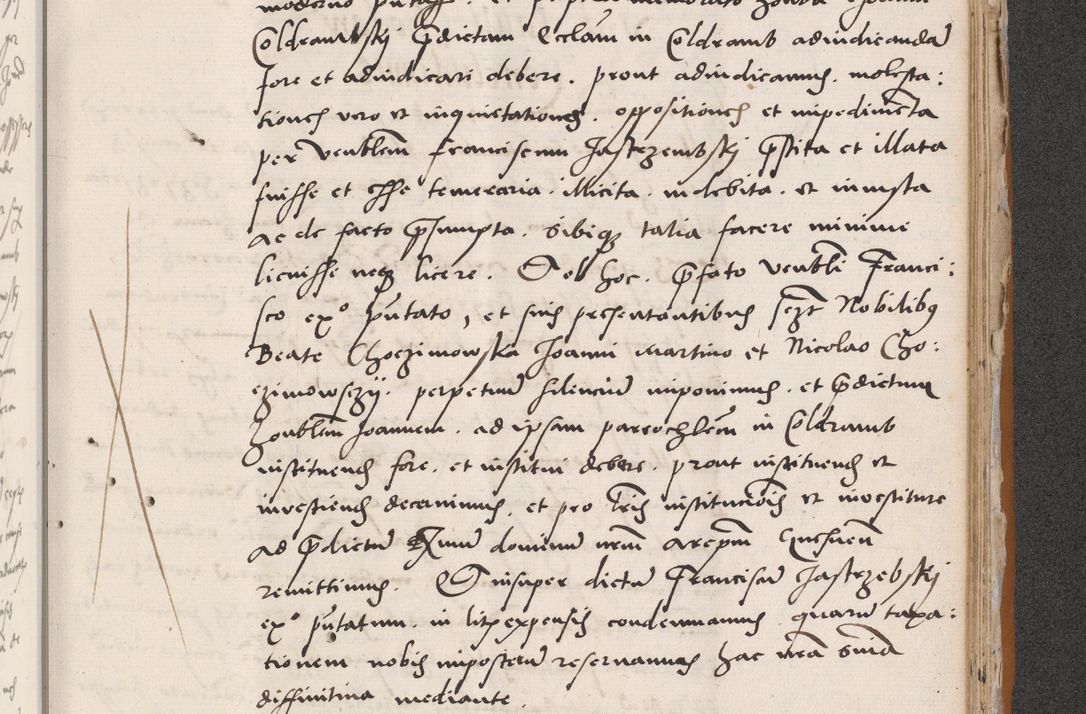 Coldrambskj p̃dictam Ecclam in Coldramb adiudicandā
fore et adiudicari debere . prout adiudicamus . molesta:
tiones vero et inquietationes . oppositiones et impedimēta
per venblem Franciscum Jastrzembskj p̃stita et illata
fuisse et esse temeraria . illicita . indebita . et iniusta
ac de facto p̃sumpta . sibiq; talia facere minime
licuisse neq; licere . Et ob hoc . p̃fato venbli Franci:
sco exº pñtato , et suis presentantibus sczt Nobilibus
Beate Choczimowska Joanni Martino et Nicolao Cho:
czimowsczij . perpetuū silenciū imponimus . et p̃dictum
honblem Joannem . ad ipsam parochlem in Coldramb
instituend fore . et institui debere . prout instituend et
inuestiend decernimus . et pro lris institucōis et inuestiture
ad p̃dictū Rmum dominum nrm Arcepm Gnesnen
remittimus . Et insuper dictū Franciscū Jastrzebskj
exº pñtatum . in litis expensis condemnamus . quarū taxa:
tionem nobis imposterū reseruamus hac nrã snīa
diffinitiua mediante .